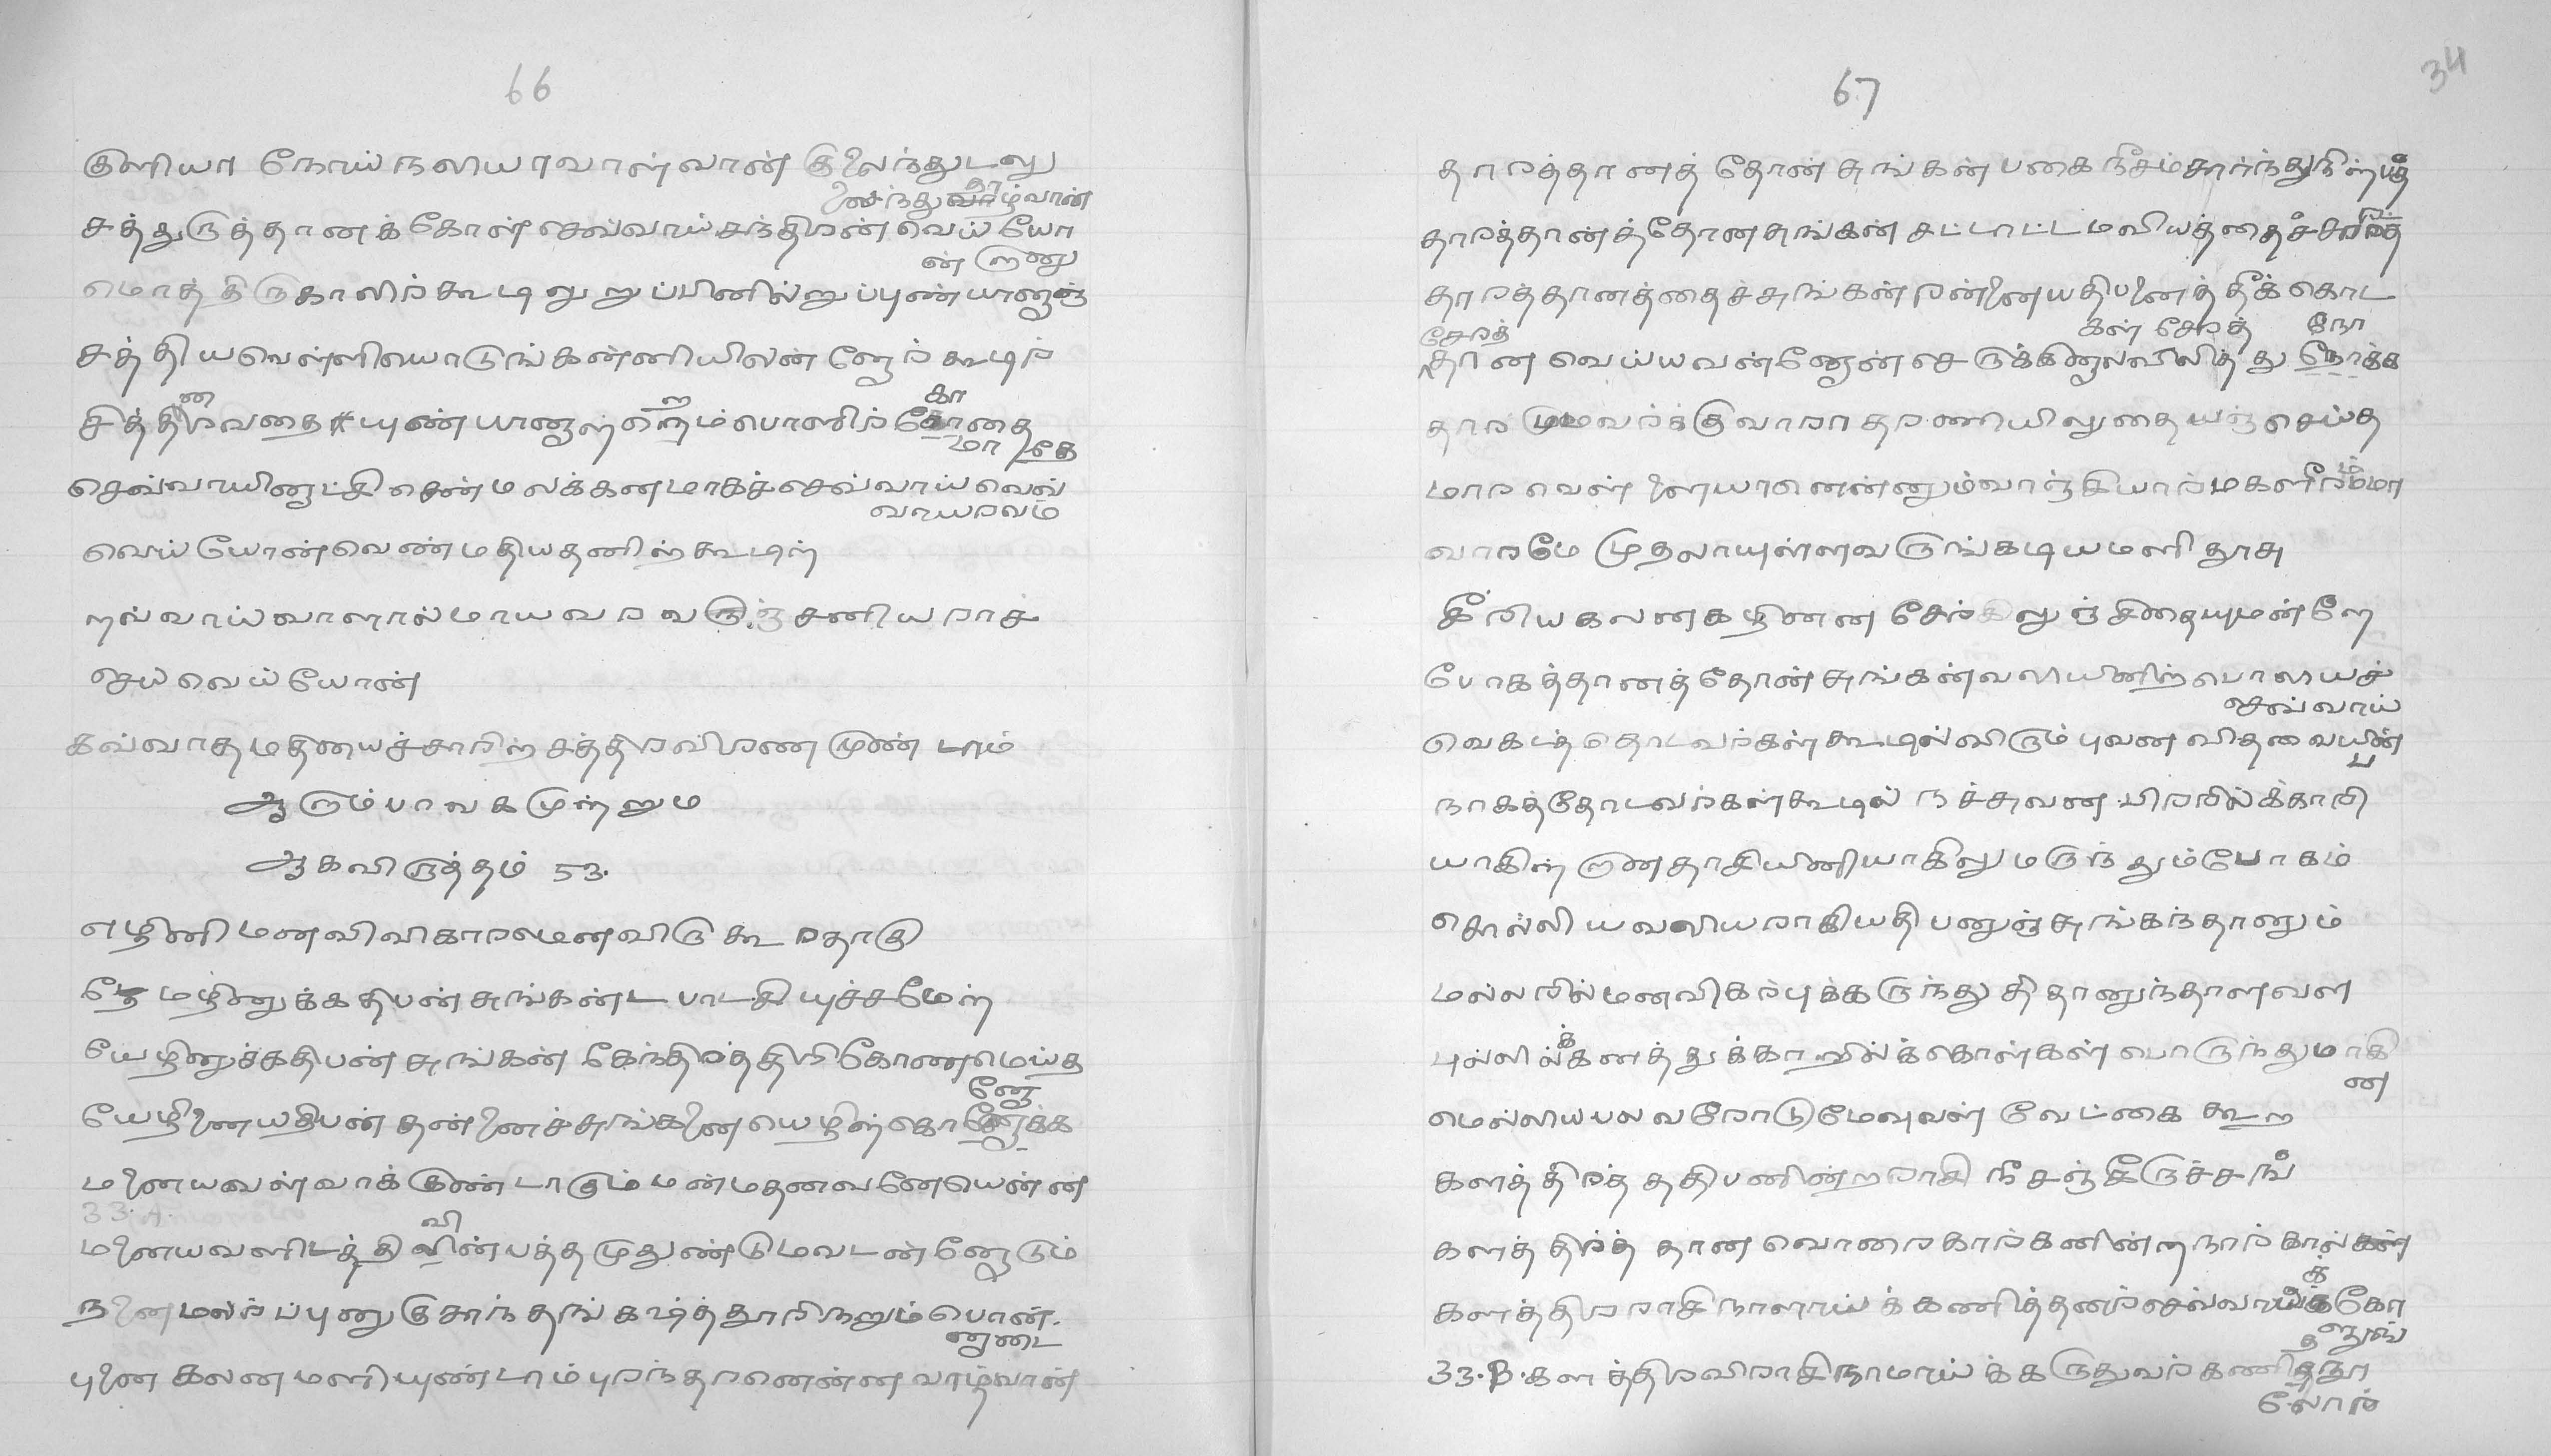 66
குளியா நோய் நலியரவாள்வான் குலைந்துடலு
லைந்து வாழ்வான்
தா
சத்துருத்தானக்கோள் செவ்வாய் சந்திரன் வெய்யோ
ன் றானு
மொத்திருகாலிற்கூடிலுறுப்பினில்றுப்புண்யானுஞ்
சத்தியவெள்ளியொடுங்கன்னியிலன்னேர் கூடிற்
சித்திரவதை யுண்யானுள் னெறும்பொளிற் கோதை
ண
ற
கா
மா தே
செவ்வாயினுட்சிசென்மலக்கனமாகச்செவ்வாய் வெவ்
வாயரவம்
வெய்யோன்வெண்மதியதனிற்கூடிற்
றவ்வாய்வாளால்மாயவரவருஞ்சனியராச்
செய் வெய்யோன்
கவ்வாதமதியைச்சாரிற்சத்திரவிரணமுண்டாம்
ஆரும்பாவகமுற்றும
ஆகவிருத்தம் 53.
எழினிமனவிவிகாரமெனவிடுகூறதாகு
மேழினுக்கதிபன்சுங்கன்டபாடகியுச்சமேற்
யேழினுச்கதிபன்சுங்கன் கேந்திரத்திரிகோணமெய்த
னோ
யேழினையதிபன்தன்னைச்சுங்கனையெழிள்கொனோக்க
மனையவள்வாக்குண்டாகும்மன்மதனவனேயென்ன
33.A.
மனையவளிடத்திலின்யத்தமுதுண்டுமவடன்னோடும்
வி
நனைமலர்ப்புனுகுசாந்தங்கஷ்த்தூரிநறும்பொன்.
னுடை
புனை கலனமளியுண்டாம்புரந்தரனென்ன வாழ்வான்
67
34
தாரத்தானத்தோன்சுங்கன் பகைநீசம்சார்ந்துநிற்பத்
தாரத்தான்த்தோனசுங்கன் சட்டாட்டமவியத்தைச்சாரத்
தாரத்தானத்தைச்சுங்கன்றன்னையதிபனைத்தீக்கொட
சேரத்
கள் சேரத்
நோ
தான வெய்யவன்னேன்செருக்கினுல்விலித்து நோக்க
தாரமுமவர்க்குவாராதரணியிலுதையஞ்செய்த
மாரவெள்ளையானென்னும்வாஞ்கியார்மகளீரம்மா
ம்
வாரமே முதலாயுள்ளவருங்கடியமளிதூசு
கீரியகலனகழினன சேர்கிலுஞ்சிதையுமன்றே
போகத்தானத்தோன்சுங்கன்வலயினிற்பொலயச்
செவ்வாய்
வெகடத்தொடவர்கள்கூடில்விரும்புவன விதவையின்
ப
நாகத்தோடவர்கள்கூடில் நச்சுவன பிறரில்க்காரி
யாகின்றானதாகியினியாகிலுமருந்தும்போகம்
சொல்லியவலியராகியதிபனுஞ்சுங்கந்தானும்
மல்லரில்மனவிகற்புக்கருந்துதிதானுந்தாளவள
க்
புல்லில்கனத்துக்காறில்க்கொள்கள்பொருந்துமாகி
ன
மெல்லியபலவரோடுமேவுவள் வேட்கை கூற
களத்திரத்ததிபனின்றராசி நீசஞ்கீருச்சங்
களத்திரத் தான வொரைகாற்கனின்றநாற்கால்கள்
க்
களத்திரராசிநாளாய்க்கணித்தனர்செவ்வாய்க்கோ
னுங்
33.B.களத்திரவிராசிநாமாய்க்கருதுவர்கணிதநூ
லோர்